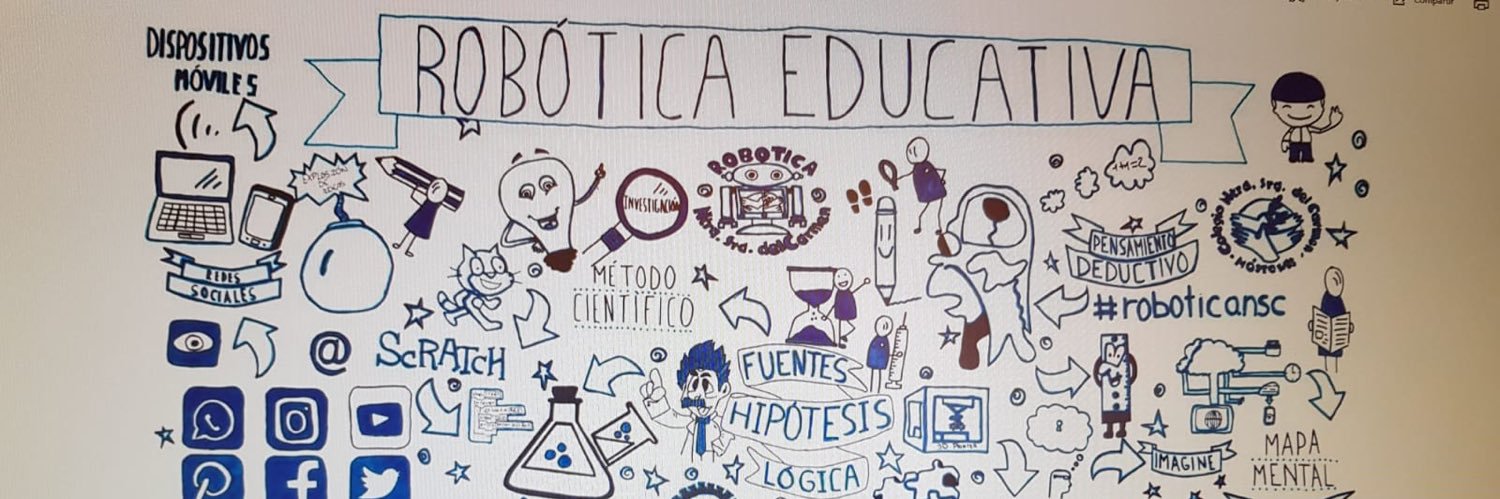 Compartir
DISPOSITIVOS
MÓVILES
ROBÓTICA EDUCATIVA
EXPLOSIÓN
DE
IDEAS
INVESTIGACIÓN
ROBOTICA
Ntra. Sra. del Carmen
1+1=2
Colegio Ntra. Sra. del Carmen
MÓSTOLES
PENSAMIENTO
DEDUCTIVO
REDES
SOCIALES
MÉTODO
CIENTÍFICO
#roboticansc
@
SCRATCH
FUENTES
HIPÓTESIS
LÓGICA
3D Printer
IMAGINE
MAPA
MENTAL